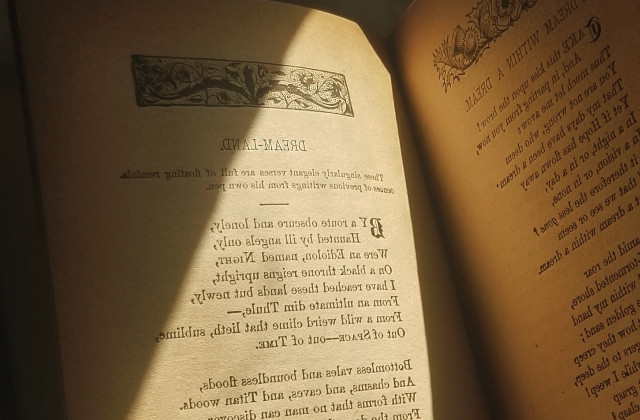 A DREAM WITHIN A DREAM
TAKE this kiss upon the brow!
And, in parting from you now,
Thus much let me avow:
You are not wrong, who deem
That my days have been a dream
Yet if Hope has flown away
In a night, or in a day,
or in none,
therefore the less gone?
that we see or seem
a dream within a dream.
amid the roar
shore,
within my hand
golden sand;
they creep
to the deep,
while I weep!
grasp
DREAM-LAND.
These singularly elegant verses are full of floating reminis-
cences of previous writings from his own pen.
BY a route obscure and lonely,
Haunted by ill angels only,
Where an Eidolon, named NIGHT,
On a black throne reigns upright,
I have reached these lands but newly,
From an ultimate dim Thule,—
From a wild weird clime that lieth, sublime,
Out of SPACE—out of TIME.
Bottomless vales and boundless floods,
And chasms, and caves, and Titan woods,
With forms that no man can discover
From the